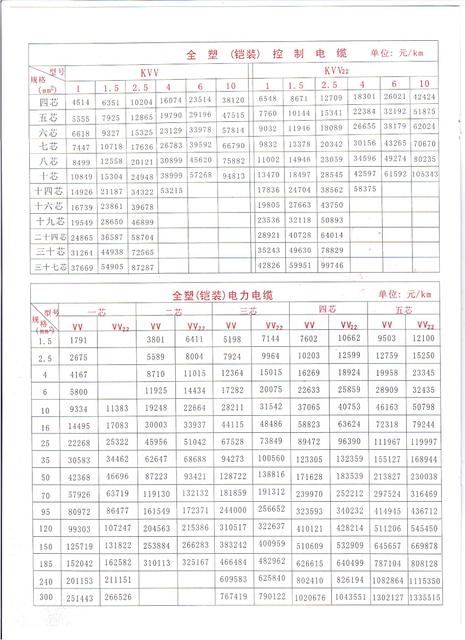 全 塑 (铠装) 控 制 电 缆 单位: 元/km
型号 KVV KVV22
规格
(mm²) 1 1.5 2.5 4 6 10 1 1.5 2.5 4 6 10
四芯 4514 6351 10204 16074 23514 38120 6548 8671 12709 18301 26021 42424
五芯 5555 7925 12865 19790 29196 47515 7760 10144 15341 22384 32192 51875
六芯 6618 9327 15325 23129 33978 57814 9032 11946 18089 26655 38179 62024
七芯 7447 10718 17636 26783 39592 66790 9832 13378 20342 30156 43265 70670
八芯 8499 12558 20121 30899 45620 75882 11002 14946 23059 34596 49274 80235
十芯 10849 15304 24948 38999 57268 94813 13470 18497 28545 42597 61592 105343
十四芯 14926 21187 34322 53215 17836 24704 38562 58375
十六芯 16739 23861 39678 19805 27663 43750
十九芯 19549 28650 46899 23536 32118 50893
二十四芯 24865 36587 58704 28921 40728 64014
三十芯 31264 44938 72565 35243 49630 78829
三十七芯 37669 54905 87287 42826 59951 99746
全塑(铠装)电力电缆 单位: 元/km
型号 一芯 二芯 三芯 四芯 五芯
规格
(mm²) VV VV22 VV VV22 VV VV22 VV VV22 VV VV22
1.5 1791 3801 6411 5198 7144 7602 10662 9503 12100
2.5 2675 5589 8004 7924 9964 10203 12599 12759 15250
4 4167 8710 11015 12364 15015 16269 18924 19958 23345
6 5800 11925 14434 17282 20075 22633 25859 28909 32435
10 9334 11383 19248 22664 28211 31542 37065 40753 46163 50798
16 14495 17083 30003 33937 44115 48486 58823 63624 72318 79244
25 22268 25322 45956 51042 67528 73849 89472 96390 111967 119997
35 30583 34462 62647 68688 94273 100560 123305 132359 155127 168944
50 42368 46696 87223 93421 128722 138816 171628 183539 213827 230038
70 57926 63719 119130 132132 181859 191312 239970 252212 297524 316469
95 80972 86477 161549 172371 244000 256652 323593 340232 414945 436712
120 99303 107247 204563 215386 310517 322637 410121 428214 511206 545450
150 125719 131822 253884 266283 383242 400959 510609 532909 645657 669878
185 152042 162582 310113 325167 466484 482962 626615 640499 787104 808128
240 201153 211151 609583 625840 802410 826194 1082864 1115350
300 251443 266526 767419 790122 1020676 1043551 1302127 1335515